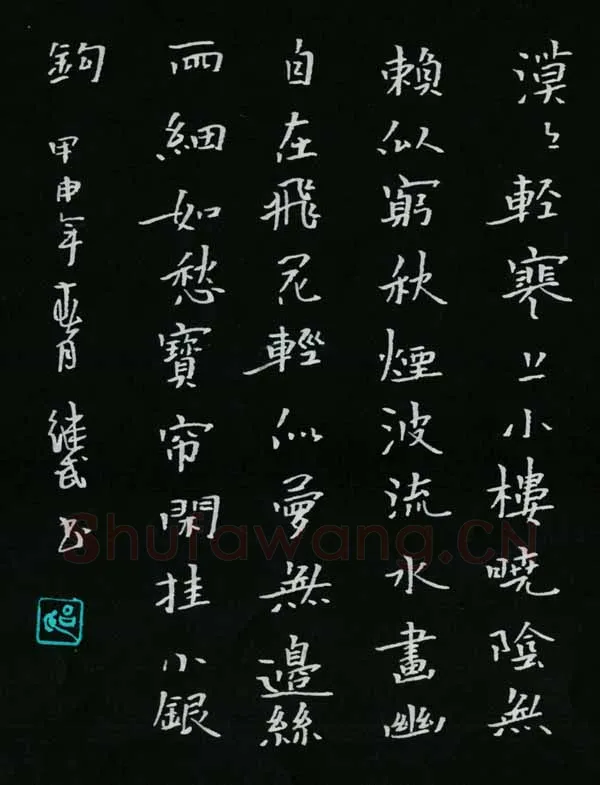 漠〻輕寒上小樓曉陰無
賴似窮秋煙波流水畫幽
自在飛花輕似夢無邊絲
雨細如愁寶帘閑挂小銀
鈎 甲申年 月 继武 书
Shufawang.CN